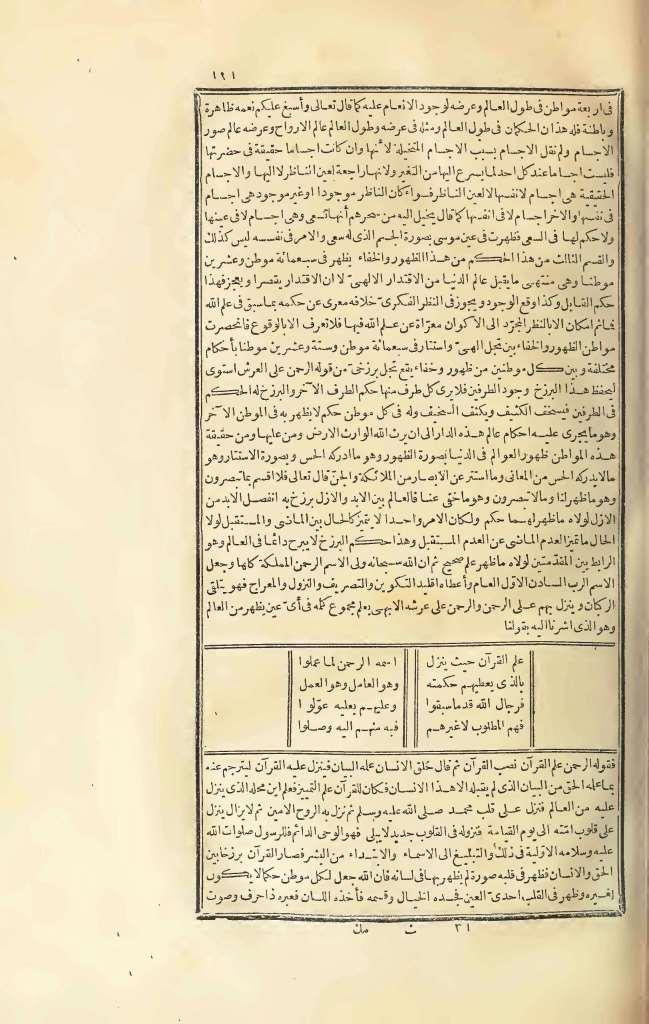 ١٢١
فى اربعة مواطن فى طول العالم وعرضه لوجود الانعام عليه كما قال تعالى وأسبغ عليكم نعمه ظاهرة
وباطنة فله هذان الحكمان فى طول العالم ومثله فى عرضه وطول العالم عالم الارواح وعرضه عالم صور
الاجسام ولم نقل الاجسام بسبب الاجسام المتخيلة لأنها وان كانت اجساما حقيقة فى حضرتها
فليست اجساما عند كل احد لما يسرع اليها من التغير ولانها راجعة لعين الناظر لا اليها والاجسام
الحقيقية هى اجسام لانفسها لا لعين الناظر فسواء كان الناظر موجودا اوغير موجود هى اجسام
فى نفسها والاخر اجسام لا فى انفسها كما قال يخيل اليه من سحرهم أنها تسعى وهى اجسام لا فى عينها
ولاحكم لها فى السعى فظهرت فى عين موسى بصورة الجسم الذى له سعى والامر فى نفسه ليس كذلك
والقسم الثالث من هذا الحكم من هذا الظهور والخفاء يظهر فى سبعمائة موطن وعشرين
موطنا وهى منتهى ما يقبل عالم الدنيا من الاقتدار الالهىّ لا ان الاقتدار يقصر او يعجز فهذا
حكم القابل وكذا وقع الوجود ويجوز فى النظر الفكرىّ خلافه معرى عن حكمه بما سبق فى علم الله
فما ثم امكان الا بالنظر المجرّد الى الاكوان معرّاة عن علم الله فيها فلا تعرف الا بالوقوع فانحصرت
مواطن الظهور والخفاء بين تجل الهىّ واستتار فى سبعمائة موطن وستة وعشرين موطنا بأحكام
مختلفة وبين كل موطنين من ظهور وخفاء يقع تجل برزخىّ من قوله الرحمن على العرش استوى
ليحفظ هذا البرزخ وجود الطرفين فلا يرى كل طرف منها حكم الطرف الآخر والبرزخ له الحكم
فى الطرفين فيسخف الكثيف ويكثف السخيف وله فى كل موطن حكم لا يظهر به فى الموطن الآخر
وهو ما يجرى عليه احكام عالم هذه الدار الى ان يرث الله الوارث الارض ومن عليها ومن حقيقة
هذه المواطن ظهور العوالم فى الدنيا بصورة الظهور وهو ما ادركه الحس وبصورة الاستتار وهو
ما لا يدركه الحس من المعانى وما استتر عن الابصار من الملائكة والجنّ قال تعالى فلا اقسم بما تبصرون
وهو ما ظهر لنا وما لا تبصرون وهو ما خفى عنا فالعالم بين الابد والازل برزخ به انفصل الابد من
الازل لولاه ما ظهر لهما حكم ولكان الامر واحدا لا يتميز كالحال بين الماضى والمستقبل لولا
الحال ما تميز العدم الماضى عن العدم المستقبل وهذا حكم البرزخ لا يبرح دائما فى العالم وهو
الرابط بين المقدّمتين لولاه ما ظهر علم صحيح ثم ان الله سبحانه ولى الاسم الرحمن المملكة كلها وجعل
الاسم الرب السادن الاول العام وأعطاه اقليد التكوين والتصريف والنزول والمعراج فهو يتلقى
الركبان وينزل بهم على الرحمن والرحمن على عرشه الابهى يعلم مجموع كله فى أىّ عين يظهر من العالم
وهو الذى اشرنا اليه بقولنا
علم القرآن حيث ينزل اسمه الرحمن لما عملوا
بالذى يعطيهم حكمته وهو العامل وهو العمل
فرجال الله قدما سبقوا وعليهم بعليه عوّلوا
فهم المطلوب لا غيرهم فبه منهم اليه وصلوا
فقوله الرحمن علم القرآن نصب القرآن ثم قال خلق الانسان علمه البيان فينزل عليه القرآن ليترجم عنه
بما علمه الحق من البيان الذى لم يقبله الا هذا الانسان فكان للقرآن علم التمييز فعلم اين محله الذى ينزل
عليه من العالم فنزل على قلب محمد صلى الله عليه وسلم ثم نزل به الروح الامين ثم لا يزال ينزل
على قلوب امّته الى يوم القيامة فنزوله فى القلوب جديد لا يبلى فهو الوحى الدائم فللرسول صلوات الله
عليه وسلامه الاولية فى ذلك والتبليغ الى الاسماء والابتداء من البشر فصار القرآن برزخا بين
الحق والانسان فظهر فى قلبه صورة لم يظهر بها فى لسانه فان الله جعل لكل موطن حكما لا يكون
لغيره وظهر فى القلب احدىّ العين فجسده الخيال وقسمه فأخذه اللسان فعيره ذا حرف وصوت
٣١ ث مك